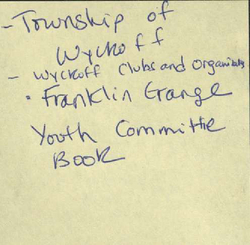 - Township of
Wyckoff
- Wyckoff Clubs and Organizatns
• Franklin Grange
Youth Committie
Book